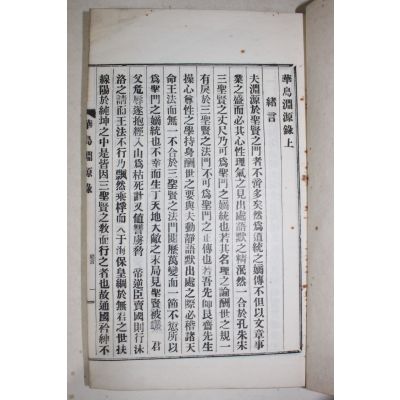 華島淵源錄上
緒言
夫淵源於聖賢之門者不啻多矣然爲道統之嫡傳不但以文章事
業之盛而必其心性理氣之見出處語默之精渾然一合於孔朱宋
三聖賢之丈尺乃可爲聖門之嫡統也若其名理之論酬世之規一
有戾於三聖賢之法門不可爲聖門之正傳也若吾先師艮齋先生
操心尊性之學持身酬世之要與夫動靜語默出處之際必稽諸天
命王法而無一不合於三聖賢之法門閱歷萬變而一節不渝所以
爲聖門之嫡統也不幸而生丁天地大敵之末局見聖賢被 君
父危辱遂抱經入山爲枯死計又値讐虜脅 帝逆臣賣國則行沐
洛之請而王法不行乃飄然乘桴而入于海保皇綱於無君之世扶
線陽於純坤之中是皆因三聖賢之敎而行之者也故通國衿紳不
華島淵源錄
緒言
一